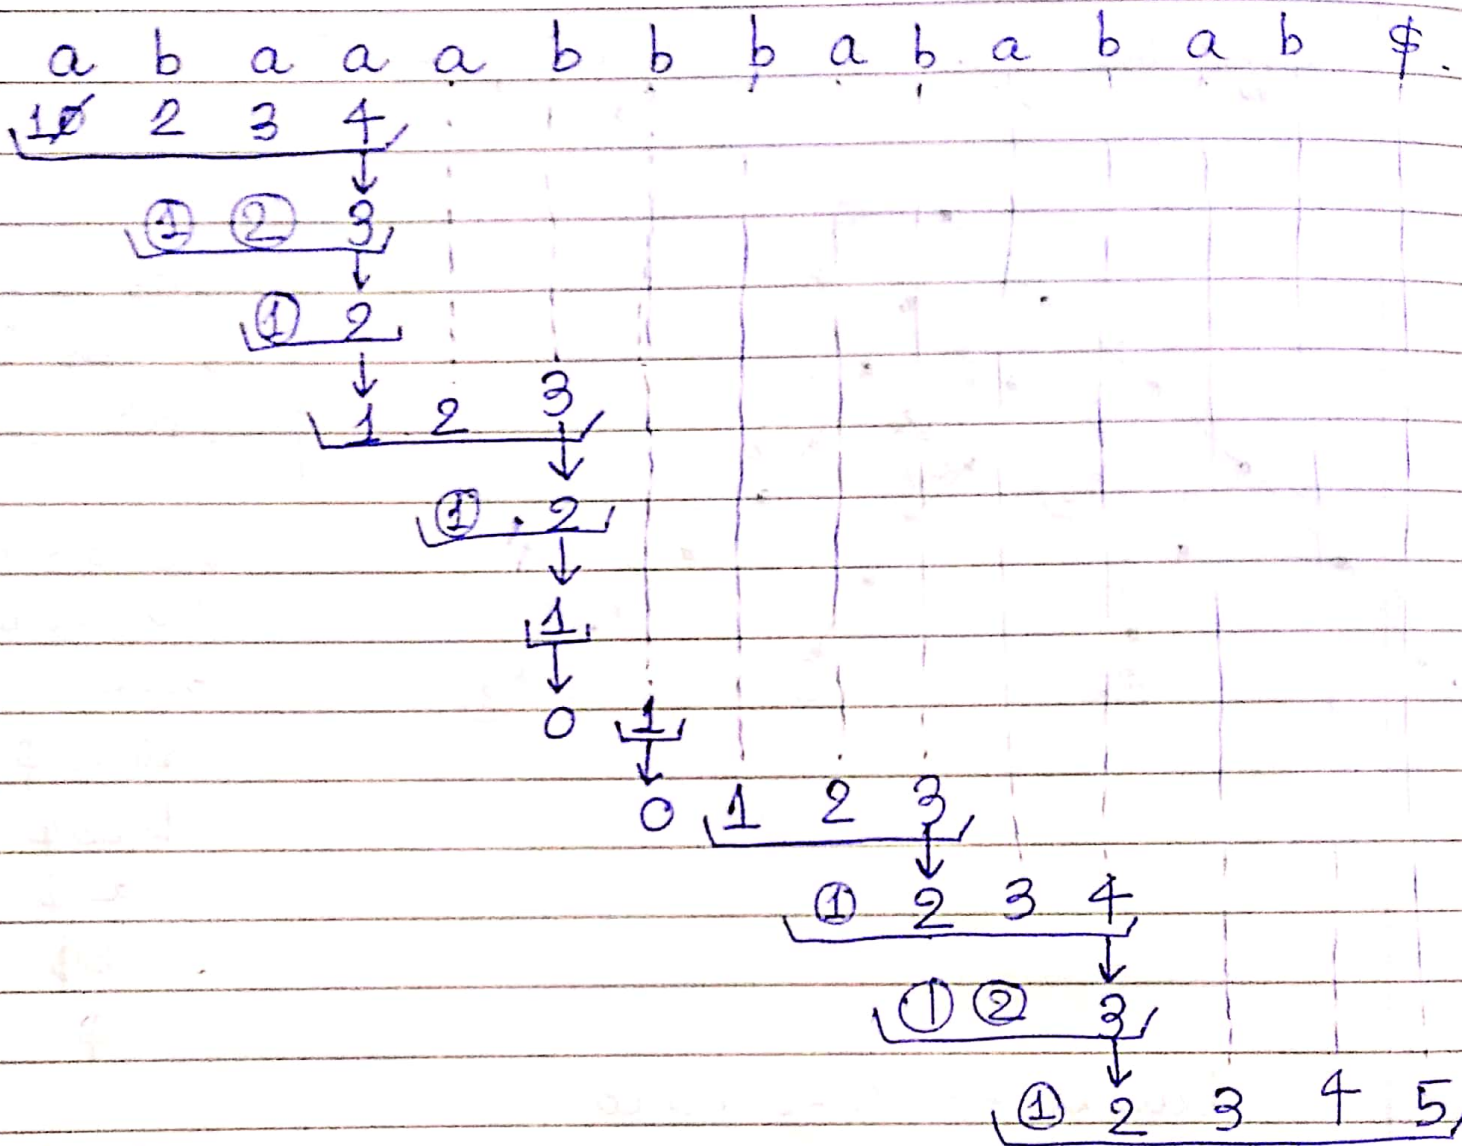 a b a a a b b b a b a b a b $
1 2 3 4
1 2 3
1 2
1 2 3
1 2
1
0 1
0 1 2 3
1 2 3 4
1 2 3
1 2 3 4 5